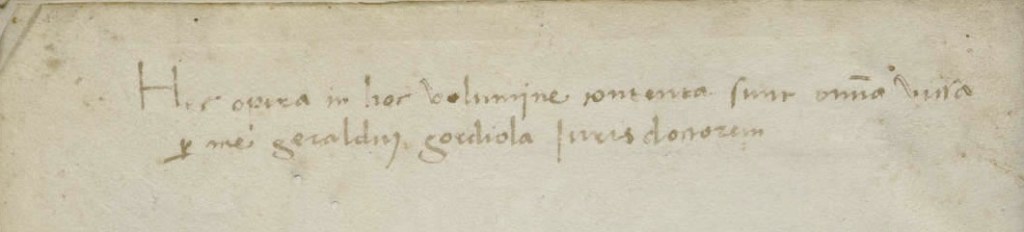 Hec opera in hoc volumine contenta sunt omīa visa
ꝑ me geralduȝ gordiola Juris doctorem